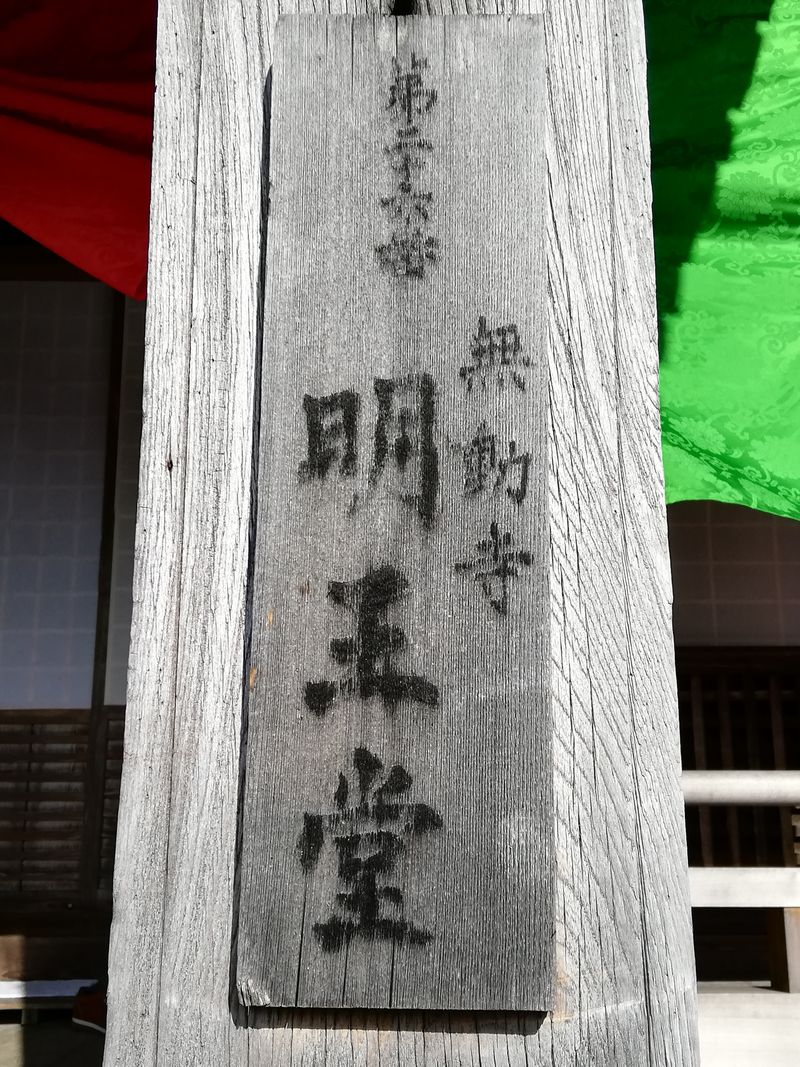 第二十六番
無動寺
明王堂